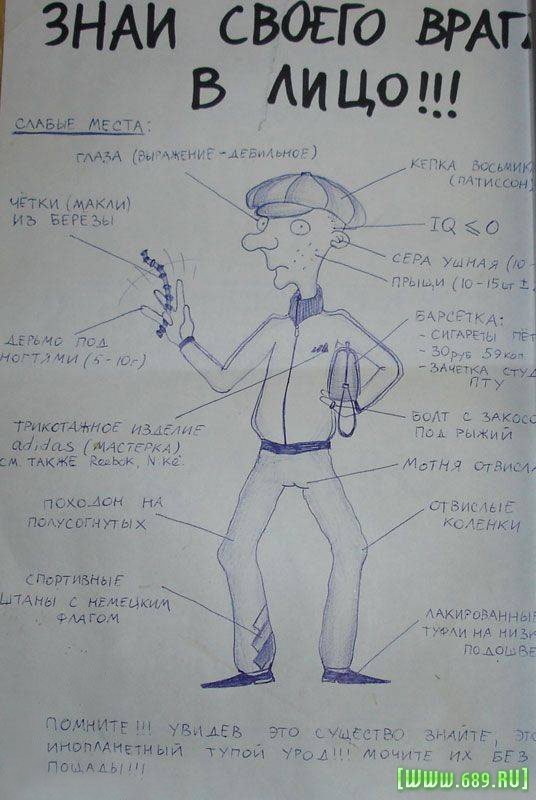 ЗНАЙ СВОЕГО ВРАГА
В ЛИЦО!!!
СЛАБЫЕ МЕСТА:
ГЛАЗА (ВЫРАЖЕНИЕ - ДЕБИЛЬНОЕ)
КЕПКА ВОСЬМИК
(ПАТИССОН)
ЧЁТКИ (МАКЛИ)
ИЗ БЕРЕЗЫ
IQ ⩽ 0
СЕРА УШНАЯ (10-
ПРЫЩИ (10-15шт ±
БАРСЕТКА:
- СИГАРЕТЫ ПЁТ
- 30 руб 59 коп
- ЗАЧЕТКА СТУД
ПТУ
ДЕРЬМО ПОД
НОГТЯМИ (5-10г)
БОЛТ С ЗАКОСО
ПОД РЫЖИЙ
ТРИКОТАЖНОЕ ИЗДЕЛИЕ
adidas (МАСТЕРКА)
СМ. ТАКЖЕ Reebok, NiKe
МОТНЯ ОТВИСЛА
ПОХОДОН НА
ПОЛУСОГНУТЫХ
ОТВИСЛЫЕ
КОЛЕНКИ
СПОРТИВНЫЕ
ШТАНЫ С НЕМЕЦКИМ
ФЛАГОМ
ЛАКИРОВАННЫЕ
ТУФЛИ НА НИЗК
ПОДОШВЕ
ПОМНИТЕ!!! УВИДЕВ ЭТО СУЩЕСТВО ЗНАЙТЕ, ЭТО
ИНОПЛАНЕТНЫЙ ТУПОЙ УРОД!!! МОЧИТЕ ИХ БЕЗ
ПОЩАДЫ!!!
[WWW.689.RU]